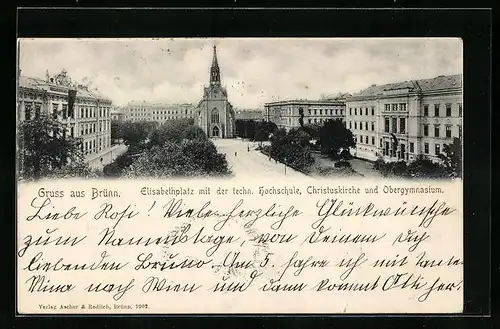 Gruss aus Brünn.
Elisabethplatz mit der techn. Hochschule, Christuskirche und Obergymnasium.
Liebe Rosi! Viele herzliche Glückwünsche
zum Namenstage, von Deinem Dich
liebenden Bruno. Am 5. fahre ich mit Tante
Mina nach Wien und dann kommt Otti her.
Verlag Ascher & Redlich, Brünn, 1902.